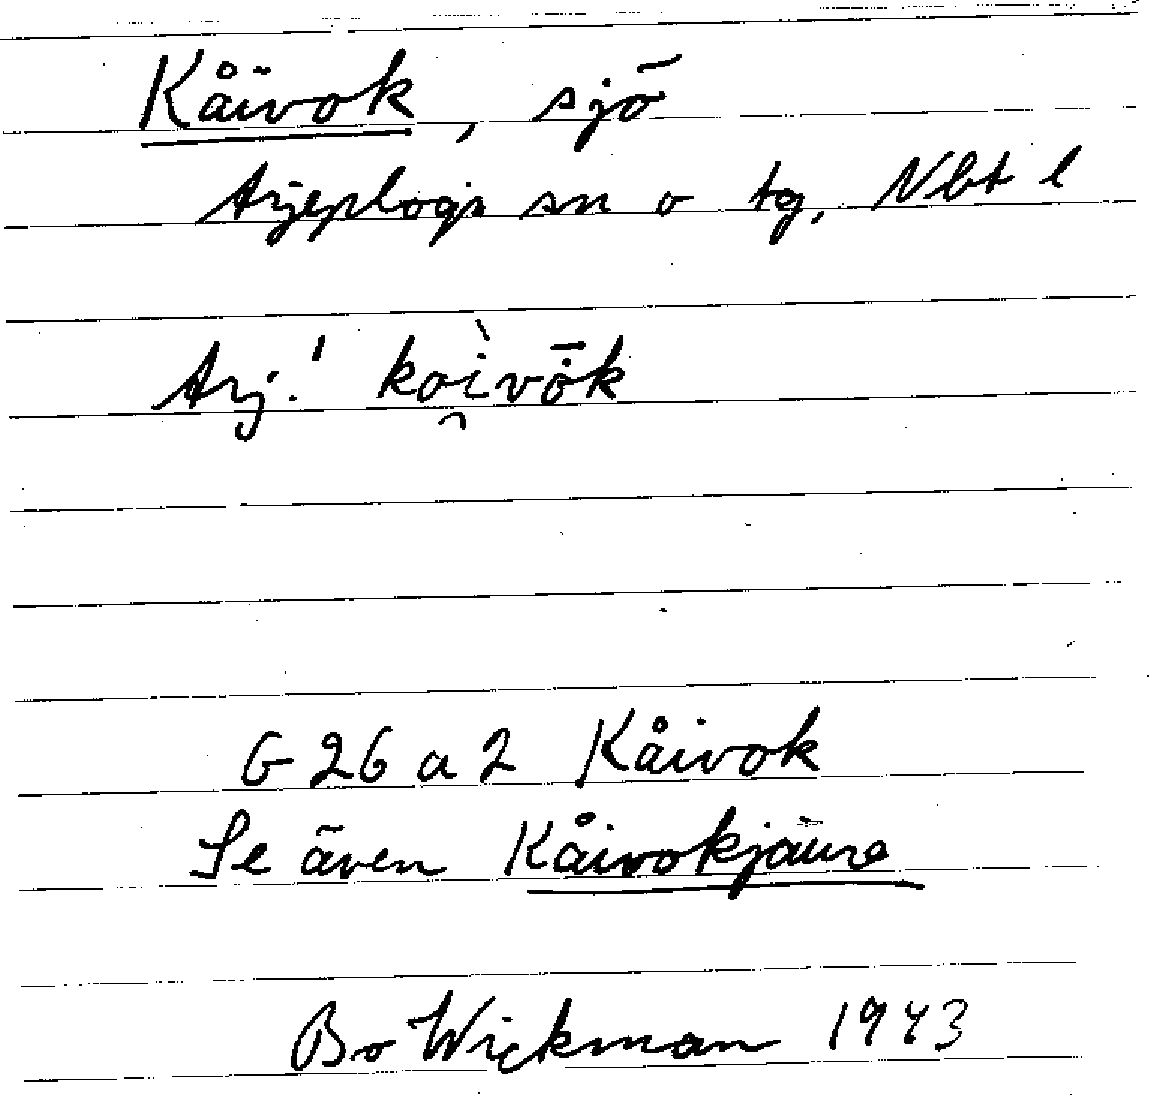 Kåivok, sjö
Arjeplogs sn o tg, Nbt l
Arj.! koì̯vō̇k
G 26 a 2 Kåivok
Se även Kåivokjaure
Bo Wickman 1943